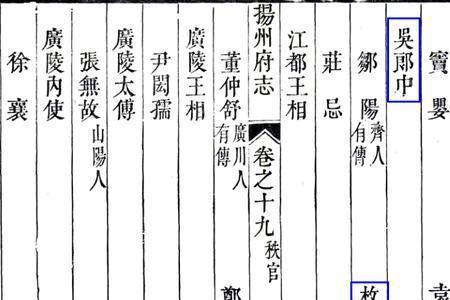 竇嬰
袁
吳郎中
鄒陽齊人有傳
枚
莊忌
江都王相
揚州府志 卷之十九 秩官
董仲舒廣川人有傳
鄭
廣陵王相
尹閎孺
廣陵太傅
張無故山陽人
廣陵內使
徐襄